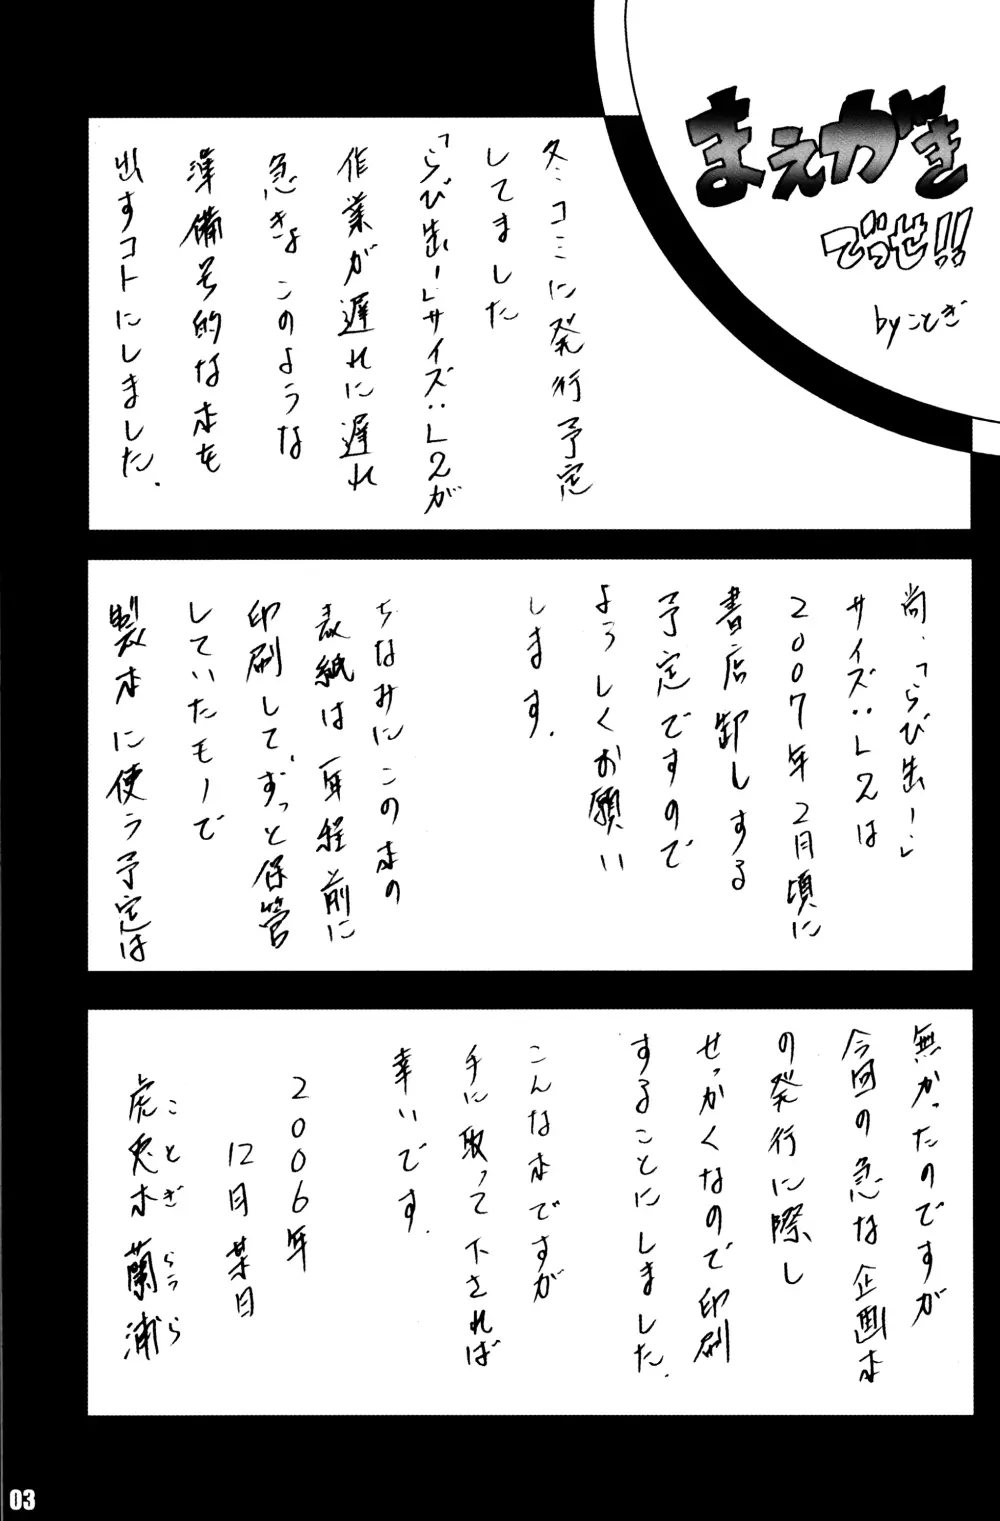 まえがき
でっせ!!
byことぎ
冬コミに発行予定
してました
「らび出し」サイズ:L2が
作業が遅れに遅れ
急きょこのような
準備号的な本を
出すコトにしました.
尚、「らび出し」
サイズ:L2は
2007年2月頃に
書店卸しする
予定ですので
よろしくお願い
します.
ちなみにこの本の
表紙は一年程前に
印刷して、ずっと保管
していたモノで
製本に使う予定は
無かったのですが
今回の急な企画本
の発行に際し
せっかくなので印刷
することにしました.
こんな本ですが
手に取って下されば
幸いです.
2006年
12月某日
ことぎ らうら
虎兎木蘭浦
03